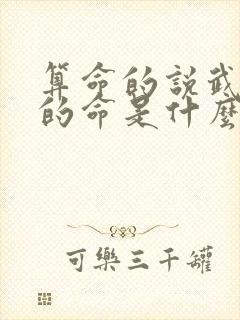 算命的説武
的命是什麼
可樂三千罐